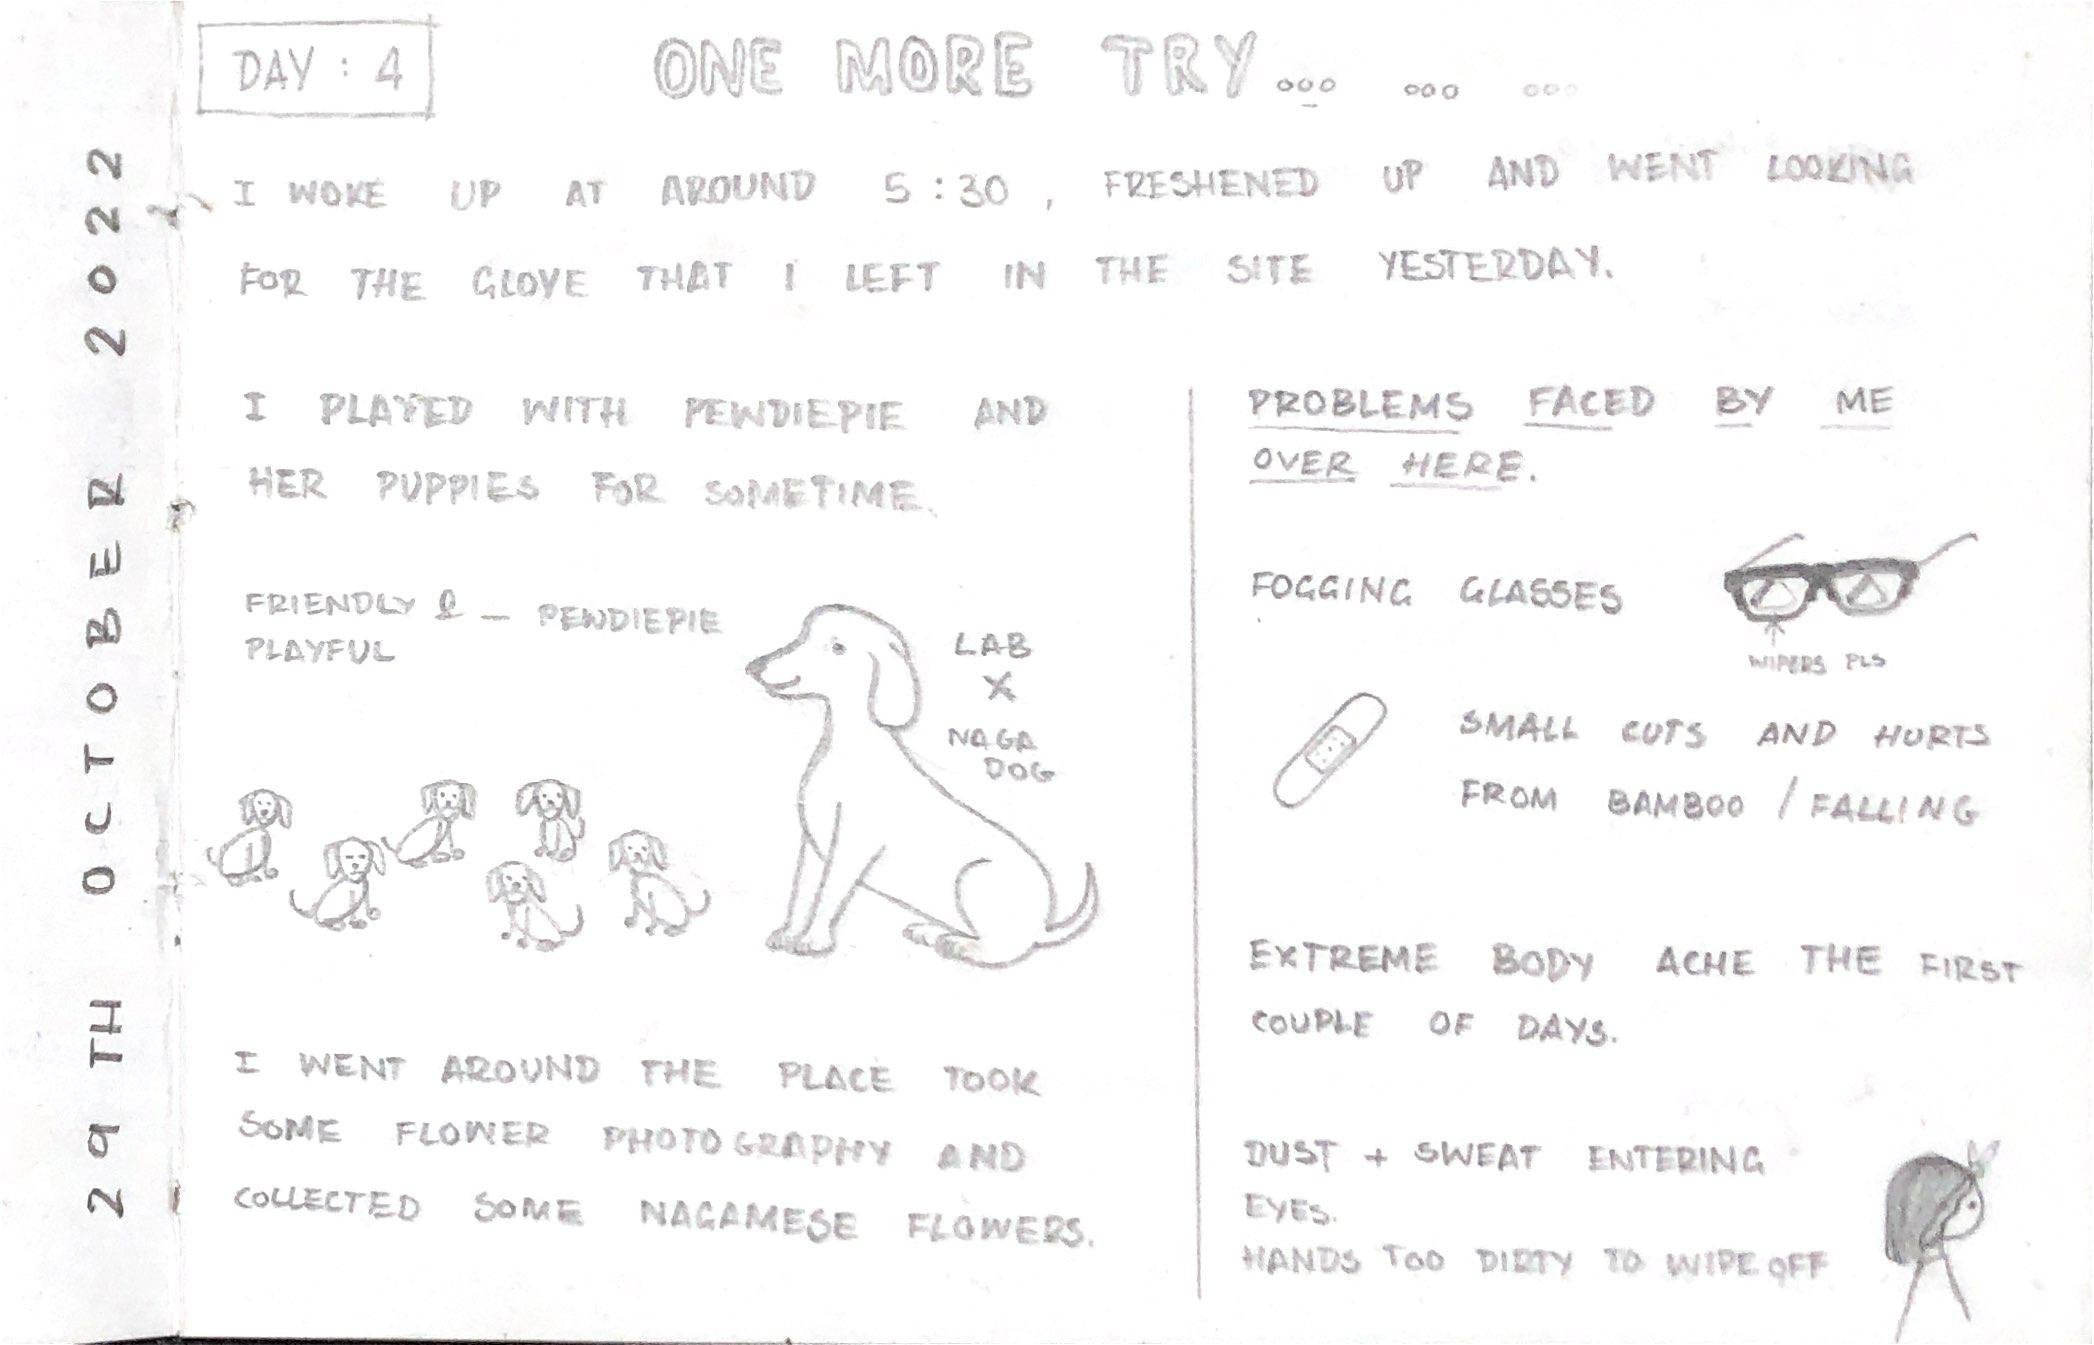 DAY : 4
ONE MORE TRY... ... ...
29TH OCTOBER 2022
I WOKE UP AT AROUND 5:30, FRESHENED UP AND WENT LOOKING
FOR THE GLOVE THAT I LEFT IN THE SITE YESTERDAY.
I PLAYED WITH PEWDIEPIE AND
HER PUPPIES FOR SOMETIME.
FRIENDLY & — PEWDIEPIE
PLAYFUL
LAB
X
NAGA
DOG
I WENT AROUND THE PLACE TOOK
SOME FLOWER PHOTOGRAPHY AND
COLLECTED SOME NAGAMESE FLOWERS.
PROBLEMS FACED BY ME
OVER HERE.
FOGGING GLASSES
WIPERS PLS
SMALL CUTS AND HURTS
FROM BAMBOO / FALLING
EXTREME BODY ACHE THE FIRST
COUPLE OF DAYS.
DUST + SWEAT ENTERING
EYES.
HANDS TOO DIRTY TO WIPE OFF